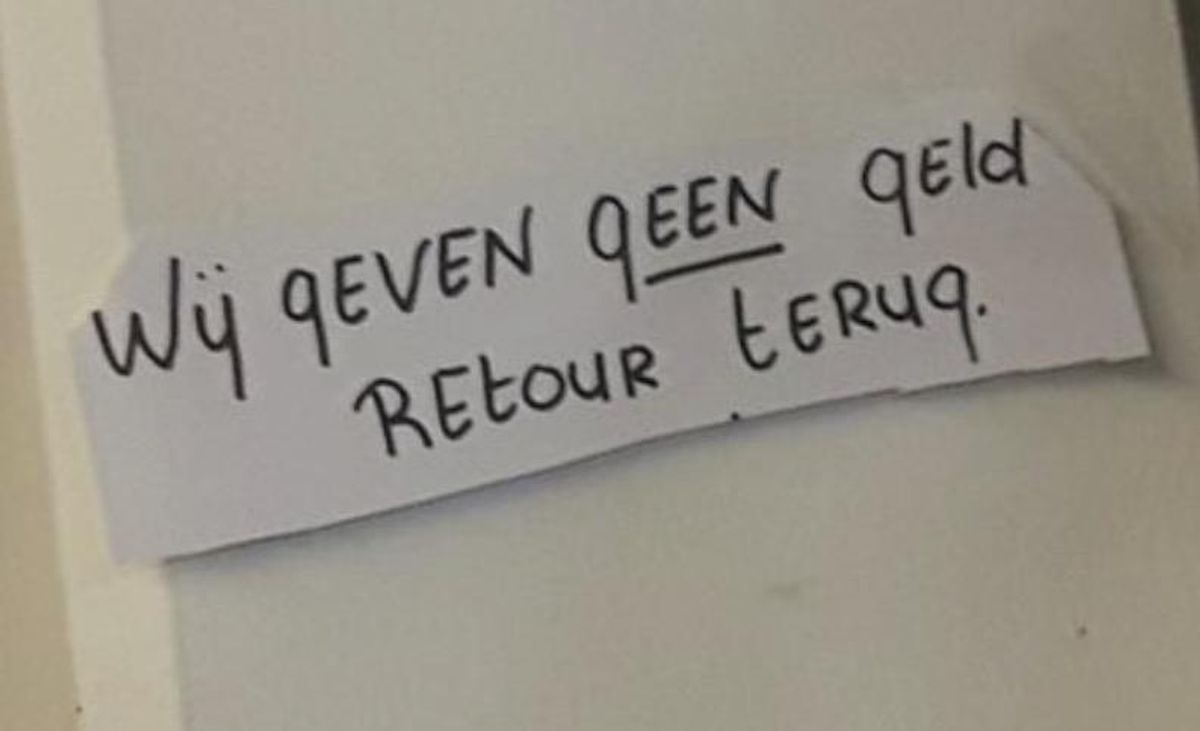 Wij gEVEN gEEN gEld
REtouR tERug.